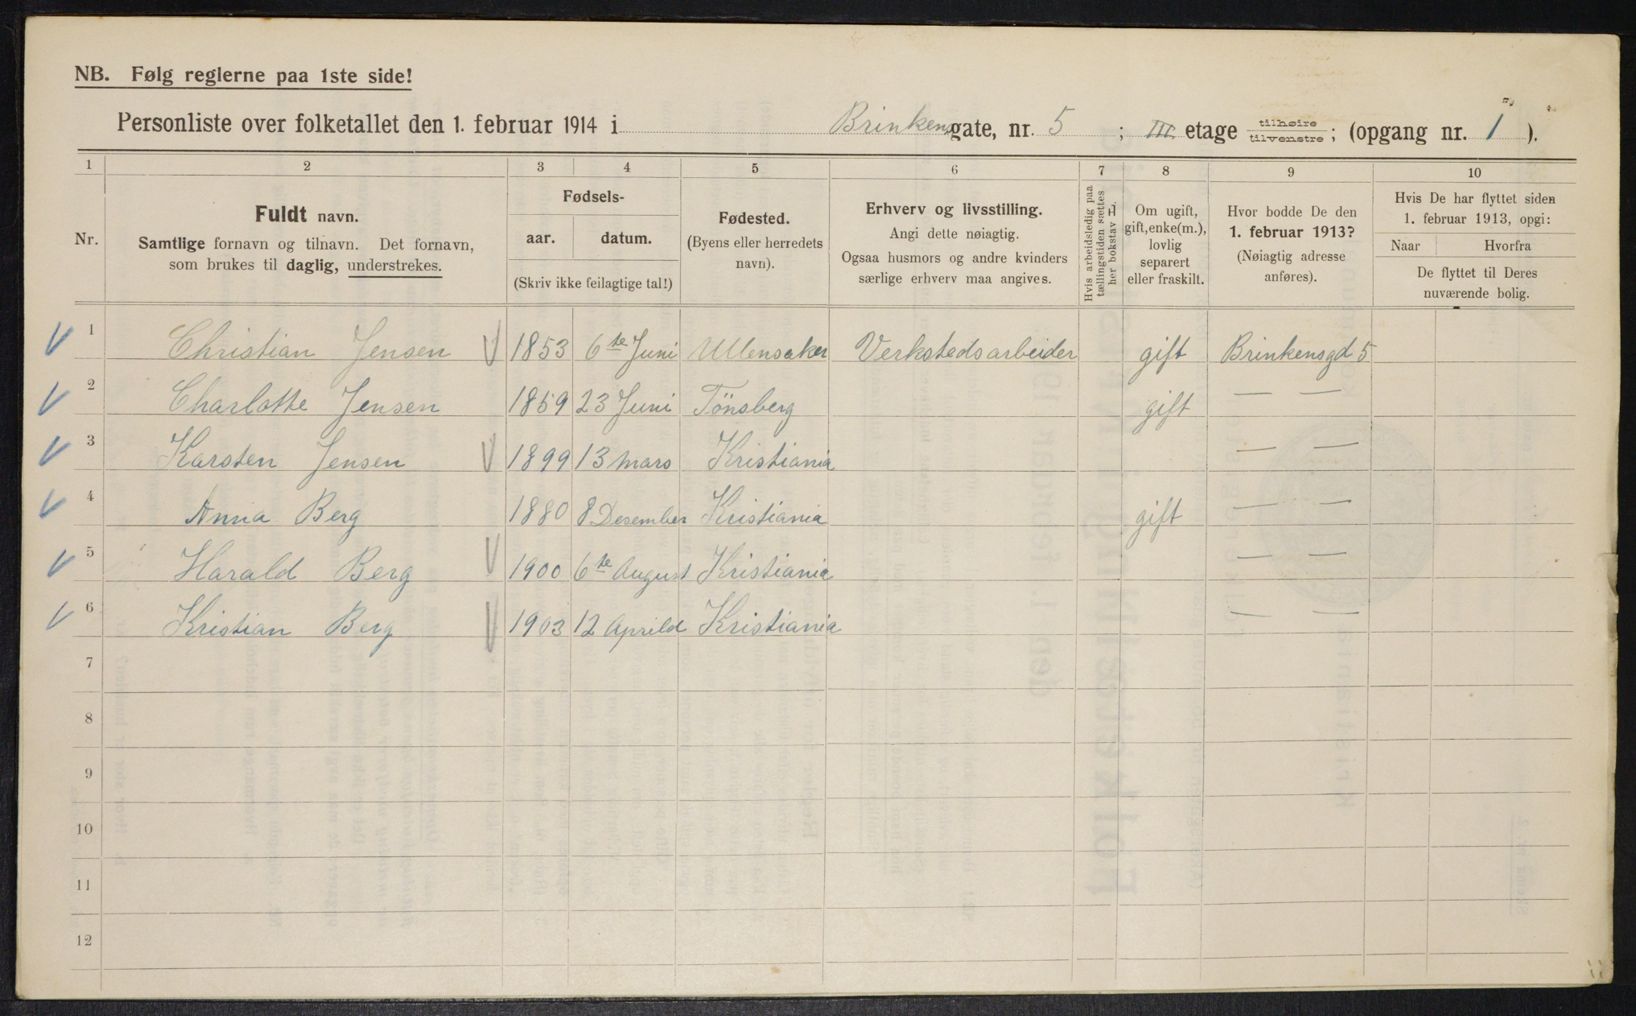 NB. Følg reglerne paa 1ste side!
Personliste over folketallet den 1. februar 1914 i Brinkensgate, nr. 5 ; III etage tilhøire tilvenstre ; (opgang nr. 1 ).
1 2 3 4 5 6 7 8 9 10
Nr.
Fuldt navn.
Samtlige fornavn og tilnavn. Det fornavn,
som brukes til daglig, understrekes.
Fødsels-
aar. datum.
(Skriv ikke feilagtige tal!)
Fødested.
(Byens eller herredets
navn).
Erhverv og livsstilling.
Angi dette nøiagtig.
Ogsaa husmors og andre kvinders
særlige erhverv maa angives.
Hvis arbeidsledig paa
tællingstiden sættes
her bokstav L.
Om ugift,
gift, enke(m.),
lovlig
separert
eller fraskilt.
Hvor bodde De den
1. februar 1913?
(Nøiagtig adresse
anføres).
Hvis De har flyttet siden
1. februar 1913, opgi:
Naar Hvorfra
De flyttet til Deres
nuværende bolig.
1 Christian Jensen 1853 6te Juni Ullensaker Verkstedsarbeider gift Brinkensgd 5
2 Charlotte Jensen 1859 23 Juni Tönsberg gift — —
3 Karsten Jensen 1899 13 mars Kristiania — —
4 Anna Berg 1880 8 Desember Kristiania gift — —
5 Harald Berg 1900 6te August Kristiania — —
6 Kristian Berg 1903 12 Aprild Kristiania — —
7
8
9
10
11
12